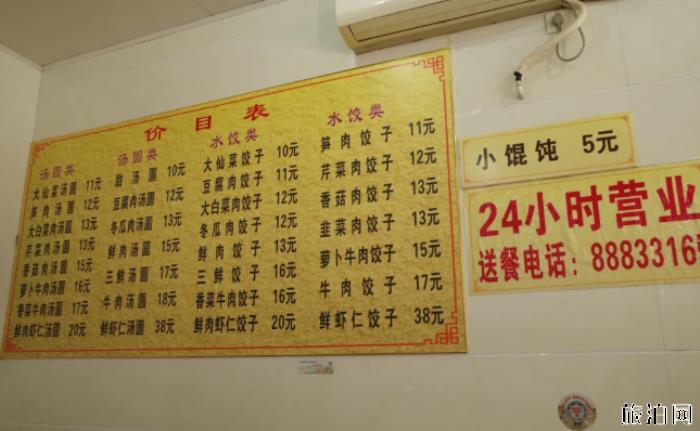 价目表
汤圆类
大仙菜汤圆 11元
笋肉汤圆 12元
大白菜肉汤圆 13元
芹菜肉汤圆 13元
香菇肉汤圆 15元
萝卜牛肉汤圆 16元
香菜牛肉汤圆 17元
鲜肉虾仁汤圆 20元
汤圆类
甜汤圆 10元
豆腐肉汤圆 12元
冬瓜肉汤圆 13元
鲜肉汤圆 15元
三鲜汤圆 17元
牛肉汤圆 18元
鲜虾仁汤圆 38元
水饺类
大仙菜饺子 10元
豆腐肉饺子 11元
大白菜肉饺子 12元
冬瓜肉饺子 12元
鲜肉饺子 13元
三鲜饺子 16元
香菜牛肉饺子 16元
鲜肉虾仁饺子 20元
水饺类
笋肉饺子 11元
芹菜肉饺子 12元
香菇肉饺子 13元
韭菜肉饺子 13元
萝卜牛肉饺子 15元
牛肉饺子 17元
鲜虾仁饺子 38元
小馄饨 5元
24小时营业
送餐电话：8883316
旅泊网